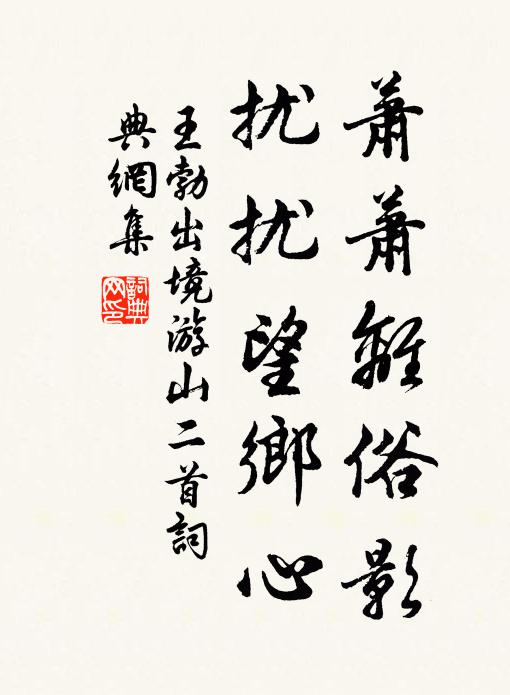 蕭蕭離俗影
扰扰望鄉心
王勃出境游山二首詞
典網集
詞典
网印